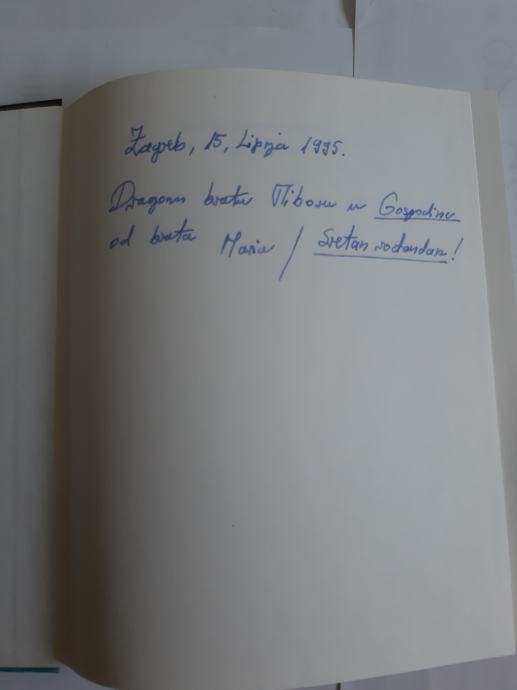 Zagreb, 15, Lipnja 1995.
Dragom bratu Tiboru u Gospodinu
od brata Maria / Sretan rođendan!